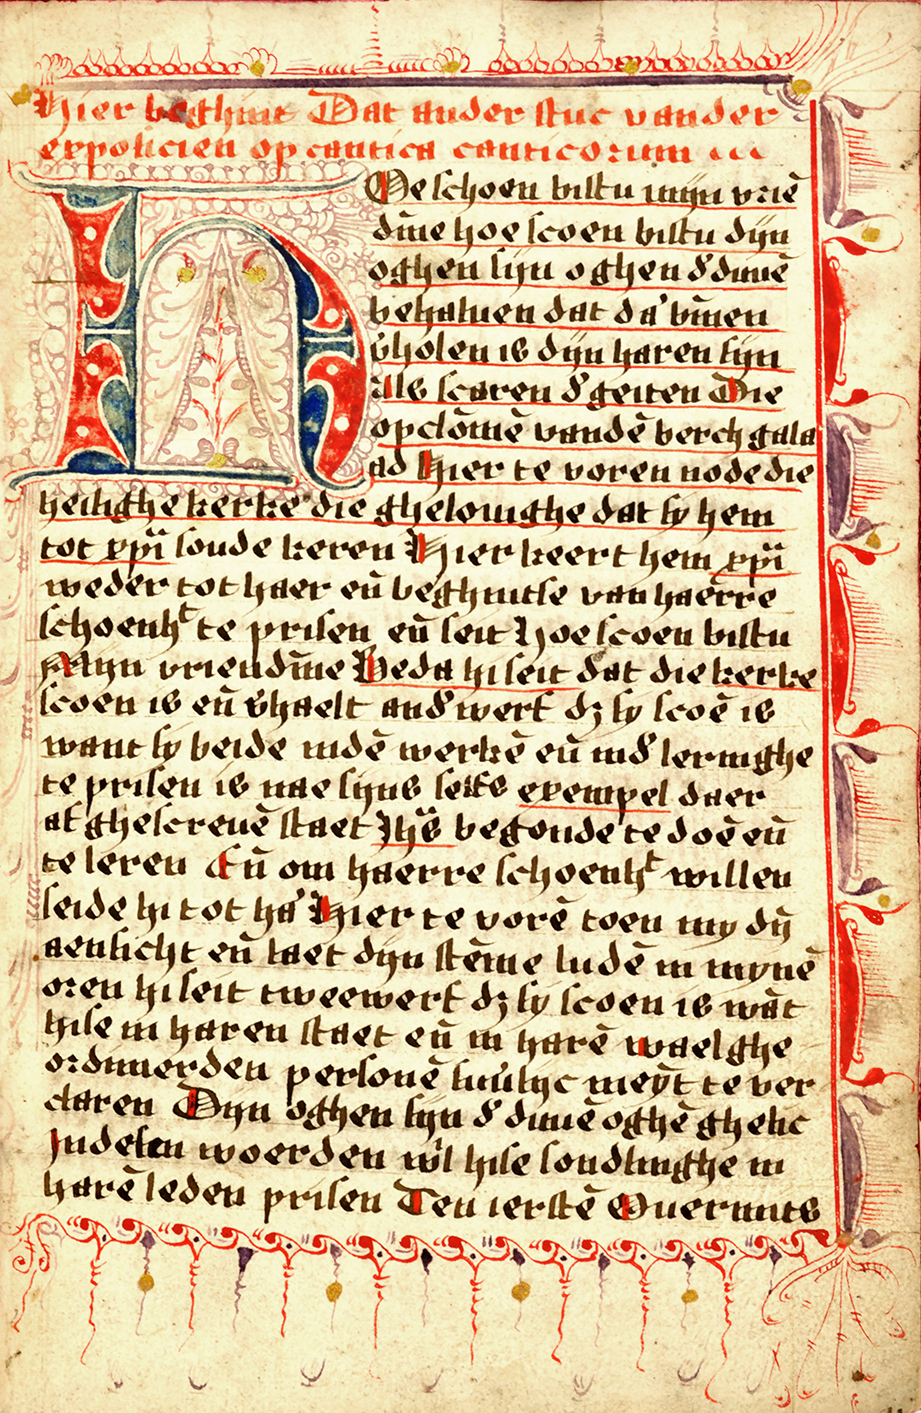 Hier beghint Dat ander stuc vander
exposicien op cantica canticorum
Hoe schoen bistu mijn vriē
dīne hoe scoen bistu dijn
oghen sijn oghen d' duuē
behaluen dat da' bīnen
v'holen is dijn haren sijn
Als scaren d' geiten Die
opclōmē vandē berch gala
ad Hier te voren node die
heilighe kerke die ghelouighe dat sy hem
tot xpī soude keren Hier keert hem xpī
weder tot haer eñ beghintse van haerre
schoenhᵗ te prisen eñ seit Hoe scoen bistu
Mijn vriendīne Beda hi seit dat die kerke
scoen is eñ v'haelt and'werf dz sy scoē is
want sy beide indē werkē eñ ind' leringhe
te prisen is nae sijns selfs exempel daer
af ghescreuē staet Jhūs begonde te doē eñ
te leren Eñ om haerre schoenhᵗ willen
seide hi tot ha' Hier te vorē toen my dijn
aensicht eñ laet dijn stēme ludē in mynē
oren hi seit tweewerf dz sy scoen is wāt
hise in haren staet eñ in harē waelghe
ordinierden personē meyt te ver
claren Dijn oghen sijn d' duuē oghē ghelic
Jn desen woerden wil hise sonderlinghe in
harē leden prisen Ten ierstē Ouermits